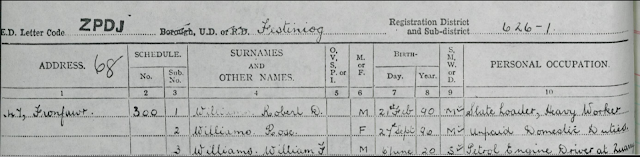 E.D. Letter Code ZPDJ Borough, U.D. or R.D. Festiniog Registration District and Sub-district 626-1
ADDRESS. 68 SCHEDULE. No. Sub. No. SURNAMES AND OTHER NAMES. O, V, S, P, or I. M. or F. BIRTH— Day. Year. S. M. W. or D. PERSONAL OCCUPATION.
1 2 3 4 5 6 7 8 9 10
300 1 Williams Robert D. M 21st Feb 90 M Slate Loader, Heavy Worker
2 Williams Rose. F 27th Sept 96 M Unpaid Domestic Duties
3 Williams William F M 6 June 20 S Petrol Engine Driver at